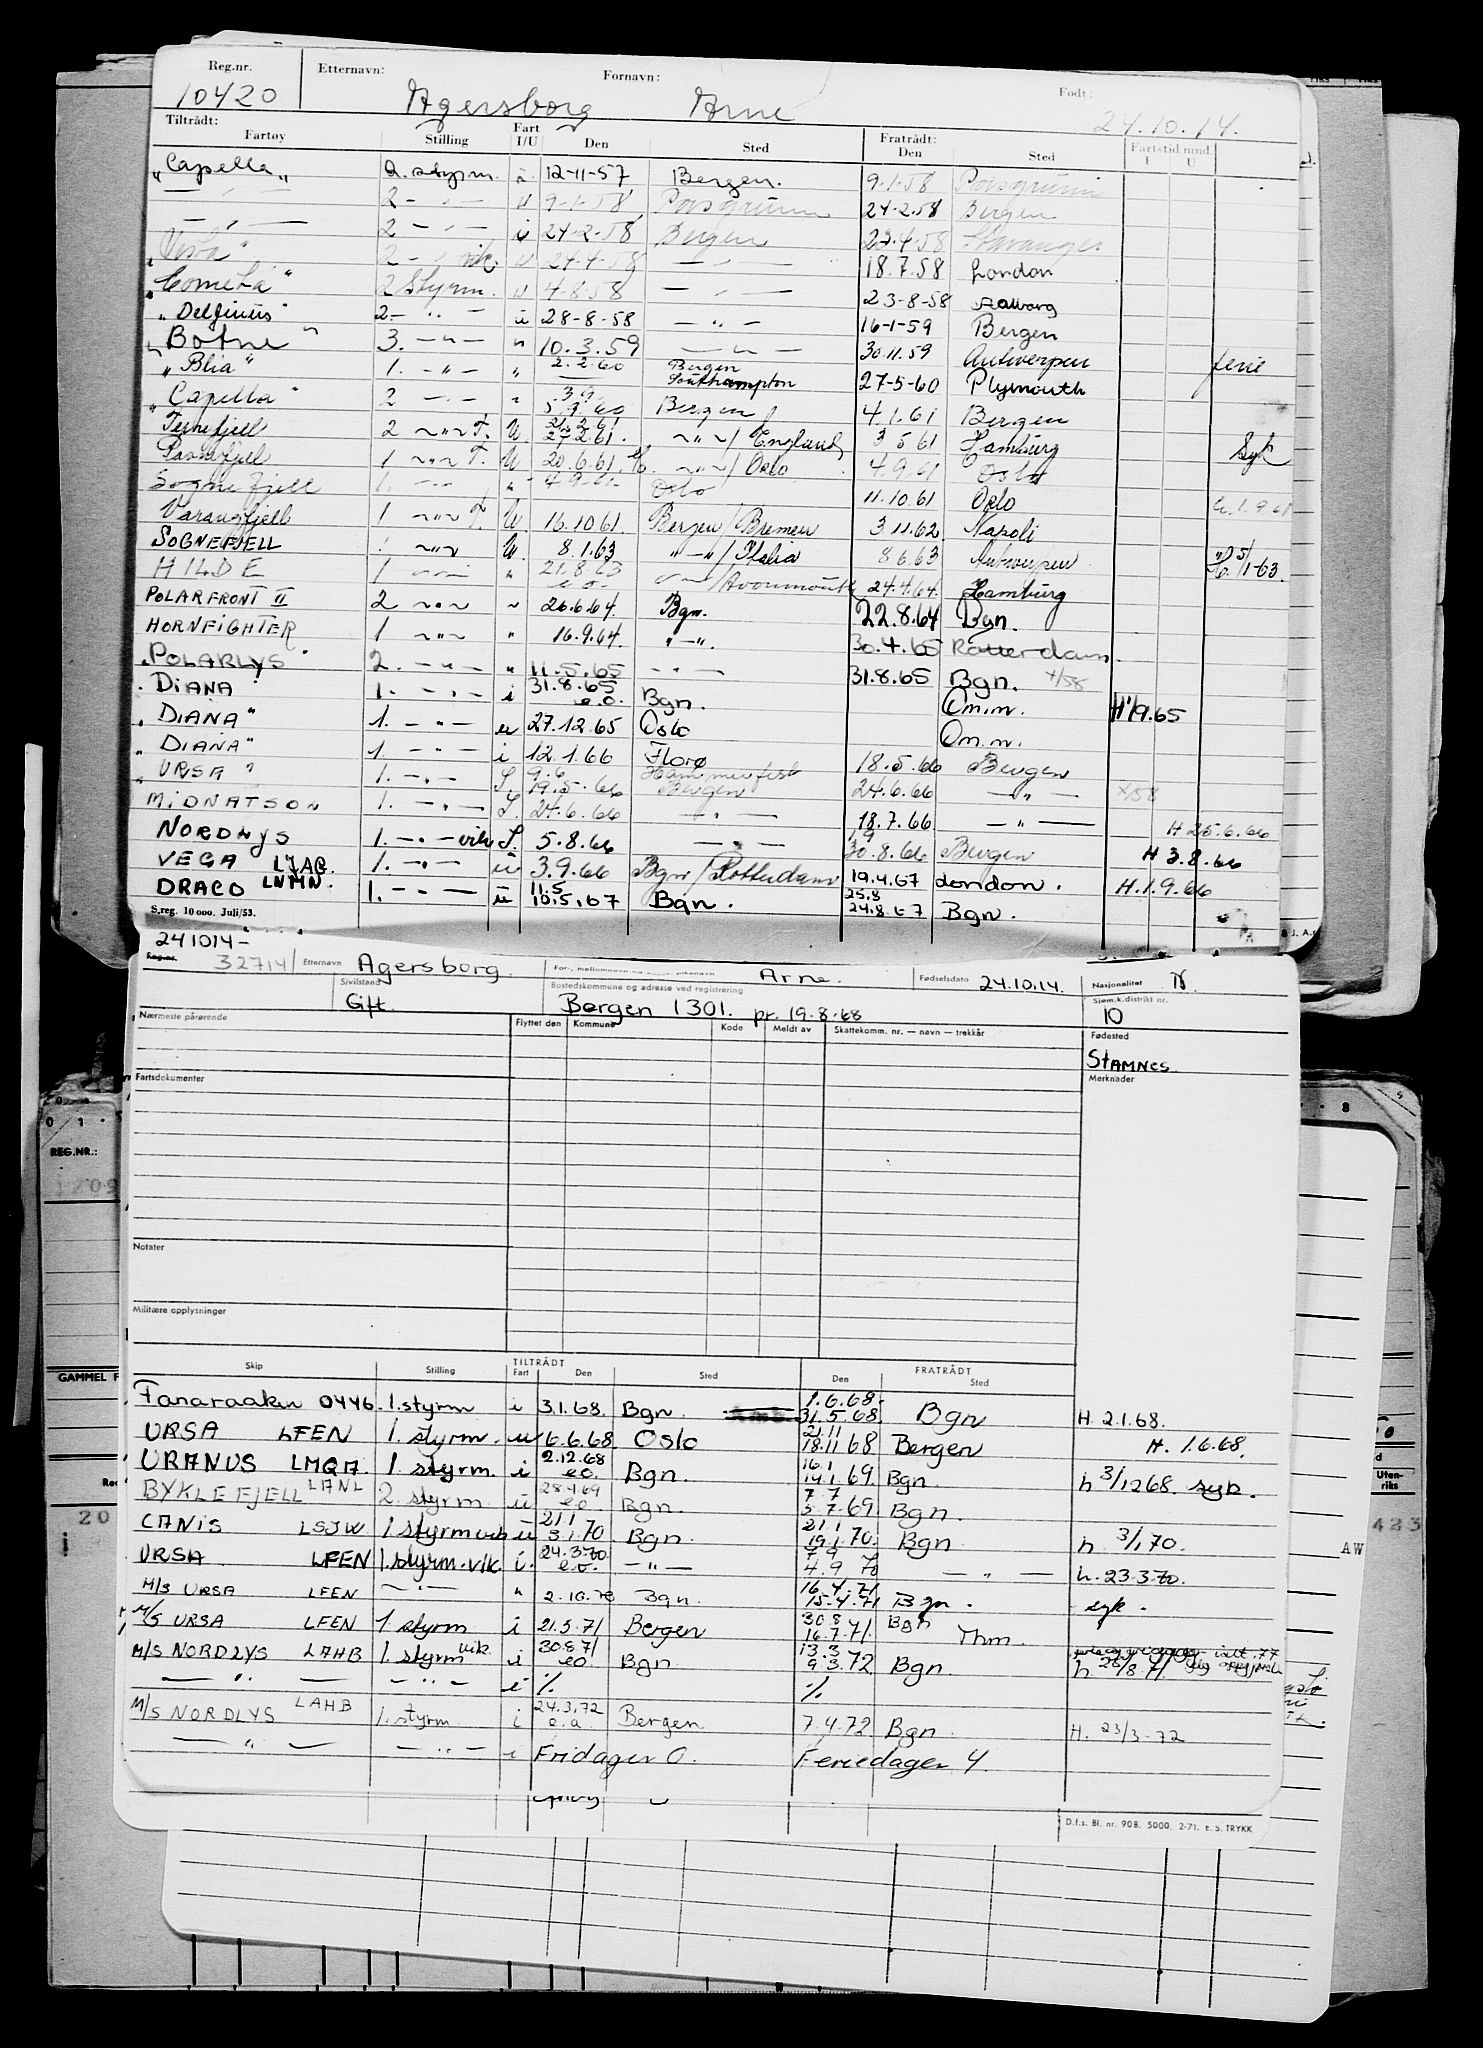 Reg.nr. Etternavn: Fornavn: Født:
10420 Agersborg Arne 24.10.14.
Tiltrådt: Fratrådt:
Fartøy Stilling Fart I/U Den Sted Den Sted Fartstid mnd. I U
"Capella" 2. styrm. 12-11-57 Bergen. 9.1.58 Porsgrunn
— " — 2 — " — u 9-1-58 Porsgrunn 24.2.58 Bergen
— " — 2 — " — i 24-2-58 Bergen 23.4.58 Stavanger
2 — " — vik. u 24-4-58 — " — 18.7.58 London
"Cometa" 2 Styrm. u 4-8-58 — " — 23-8-58 Aalborg
"Delfinus 2 — " — u 28-8-58 — " — 16-1-59 Bergen
"Botne" 3. — " — " 10.3.59 — " — 30.11.59 Antwerpen ferie
"Blia" 1. — " — " 2.2.60 Bergen Southampton 27-5-60 Plymouth
"Capella" 2 — " — " 3.9. 5.9.60 Bergen 4.1.61 Bergen
Ternefjell 2 — " — F. U. 21.2.61 27.2.61. — " — / England 3 5 61 Hamburg Syk
Ravnefjell 1 — " — F. U 20.6.61. — " — / Oslo 4.9.61 Oslo
Sognefjell 1. — " — " 4-9-61- Oslo 11.10 61 Oslo h. 1.9.61
Varangfjell 1 — " — F. U 16.10 61. Bergen / Bremen 3 11.62. Napoli
SOGNEFJELL 1 — " — U. 8.1.63 — " — / Italia 8 6 63 Antwerpen 5/1-63.
HILDE 1 — " — " 21.8.63 e.o. — " — / Avonmouth 24.4.64. Hamburg
POLARFRONT II 2 — " — " 26.6.64. Bgn. 22.8.64 Bgn.
HORNFIGHTER 1 — " — " 16.9.64. — " — 30.4.65 Rotterdam.
"POLARLYS" 2. — " — " 11.5.65 — " — 31.8.65 Bgn. x/58
"DIANA 1. — " — i 31.8.65 e.o. Bgn. Om.m. H 1/9.65
"DIANA" 1. — " — u 27.12.65 Oslo Om.m.
"DIANA" 1 — " — i 12.1.66 Florø 18.5.66 Bergen
"URSA" 1. — " — S. 9.6 19.5.66 Hammerfest Bergen 24.6.66 — " — x/58
MIDNATSOL 1 — " — S. 24.6.66 — " — 18.7.66 — " — H 25.6.66
NORDLYS 1. — " — vik S. 5.8.66 — " — 1/9 30.8.66 Bergen H 3.8.66
VEGA LJAB. 1. — " — u 3.9.66 Bgn / Rotterdam 19.4.67 London. H. 1.9.66
DRACO LNMN. 1. — " — u 11.5 10.5.67 Bgn. 25.8 24.8.67 Bgn.
S.reg. 10 000. Juli/53.
241014-
Reg.nr. 32714 Etternavn Agersborg Arne. Fødselsdato 24.10.14. Nasjonalitet N.
Sivilstand Gift. Bostedskommune og adresse ved registrering Bergen 1301. pr. 19.8.68 Sjøm.k.distrikt nr. 10
Nærmeste pårørende Flyttet den Kommune Kode Meldt av Skattekomm. nr. — navn — trekkår Fødested
STAMNES.
Fartsdokumenter Merknader
Notater
Militære opplysninger
TILTRÅDT FRATRÅDT
Skip Stilling Fart Den Sted Den Sted
Fanaraaken 0446. 1. styrm i 3.1.68. Bgn. 1.6.68. 31.5.68 Bgn H. 2.1.68.
URSA LFEN 1. styrm. u 6.6.68 Oslo 21.11 18.11 68 Bergen H. 1.6.68.
URANUS LMQA. 1. styrm. i 2.12.68 e.o. Bgn. 16.1 14.1 69. Bgn. h 3/12 68. syk.
BYKLEFJELL LANL 2. styrm u 28.4.69 e.o. Bgn. 7.7 5.7.69 Bgn.
CANIS LSJW 1 styrm vik u 21.1 3.1.70 Bgn. 21.1 19.1.70. Bgn h. 3/1 70.
URSA LFEN 1. styrm. vik. i. 24.3.70. e.o. — " — 7.9 4.9 70 — " — h. 23.3.70.
M/S URSA LFEN — " — " 2.10.70 Bgn. 16.4.71 15.4.71 Bgn. syk.
M/S URSA LFEN 1 styrm i 21.5.71 Bergen 30.8 16.7.71. Bgn Thm.
M/S NORDLYS LAHB 1. styrm vik. i 30.8.71 e.o. Bgn. 13.3 9.3.72 Bgn h 28/8 71.
— " — — " — i % %
M/S NORDLYS LAHB 1. styrm i 24.3.72 e.o. Bergen 7.4.72 Bgn. H. 23/3-72
— " — — " — i Fridager 0. Feriedager 4.
D.f.s. Bl. nr. 908. 5000. 2-71. E. S. TRYKK
REG.NR.:
GAMMEL F
Uten-riks
423
AW